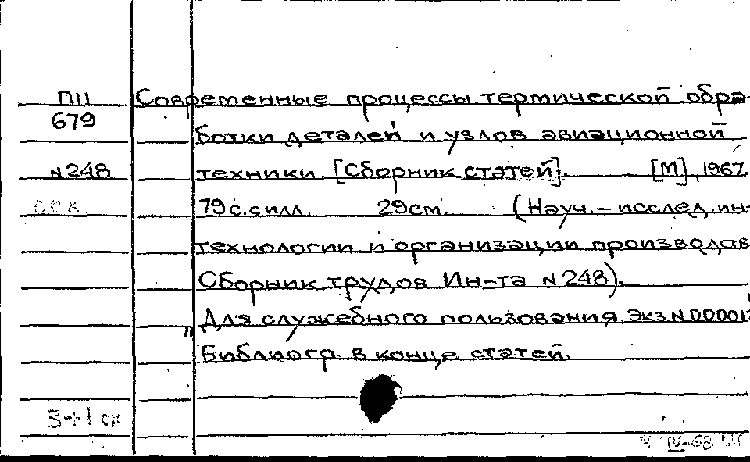 ПII Современные процессы термической обра-
679
ботки деталей и узлов авиационной
N248 техники [Сборник статей]. [М], 1967.
79 с. с илл. 29 см. (Науч.-исслед. ин-
технологии и организации производства
Сборник трудов Ин-та N 248).
"Для служебного пользования. Экз. N 00001
Библиогр. в конце статей.
3+1 ск
IV-68